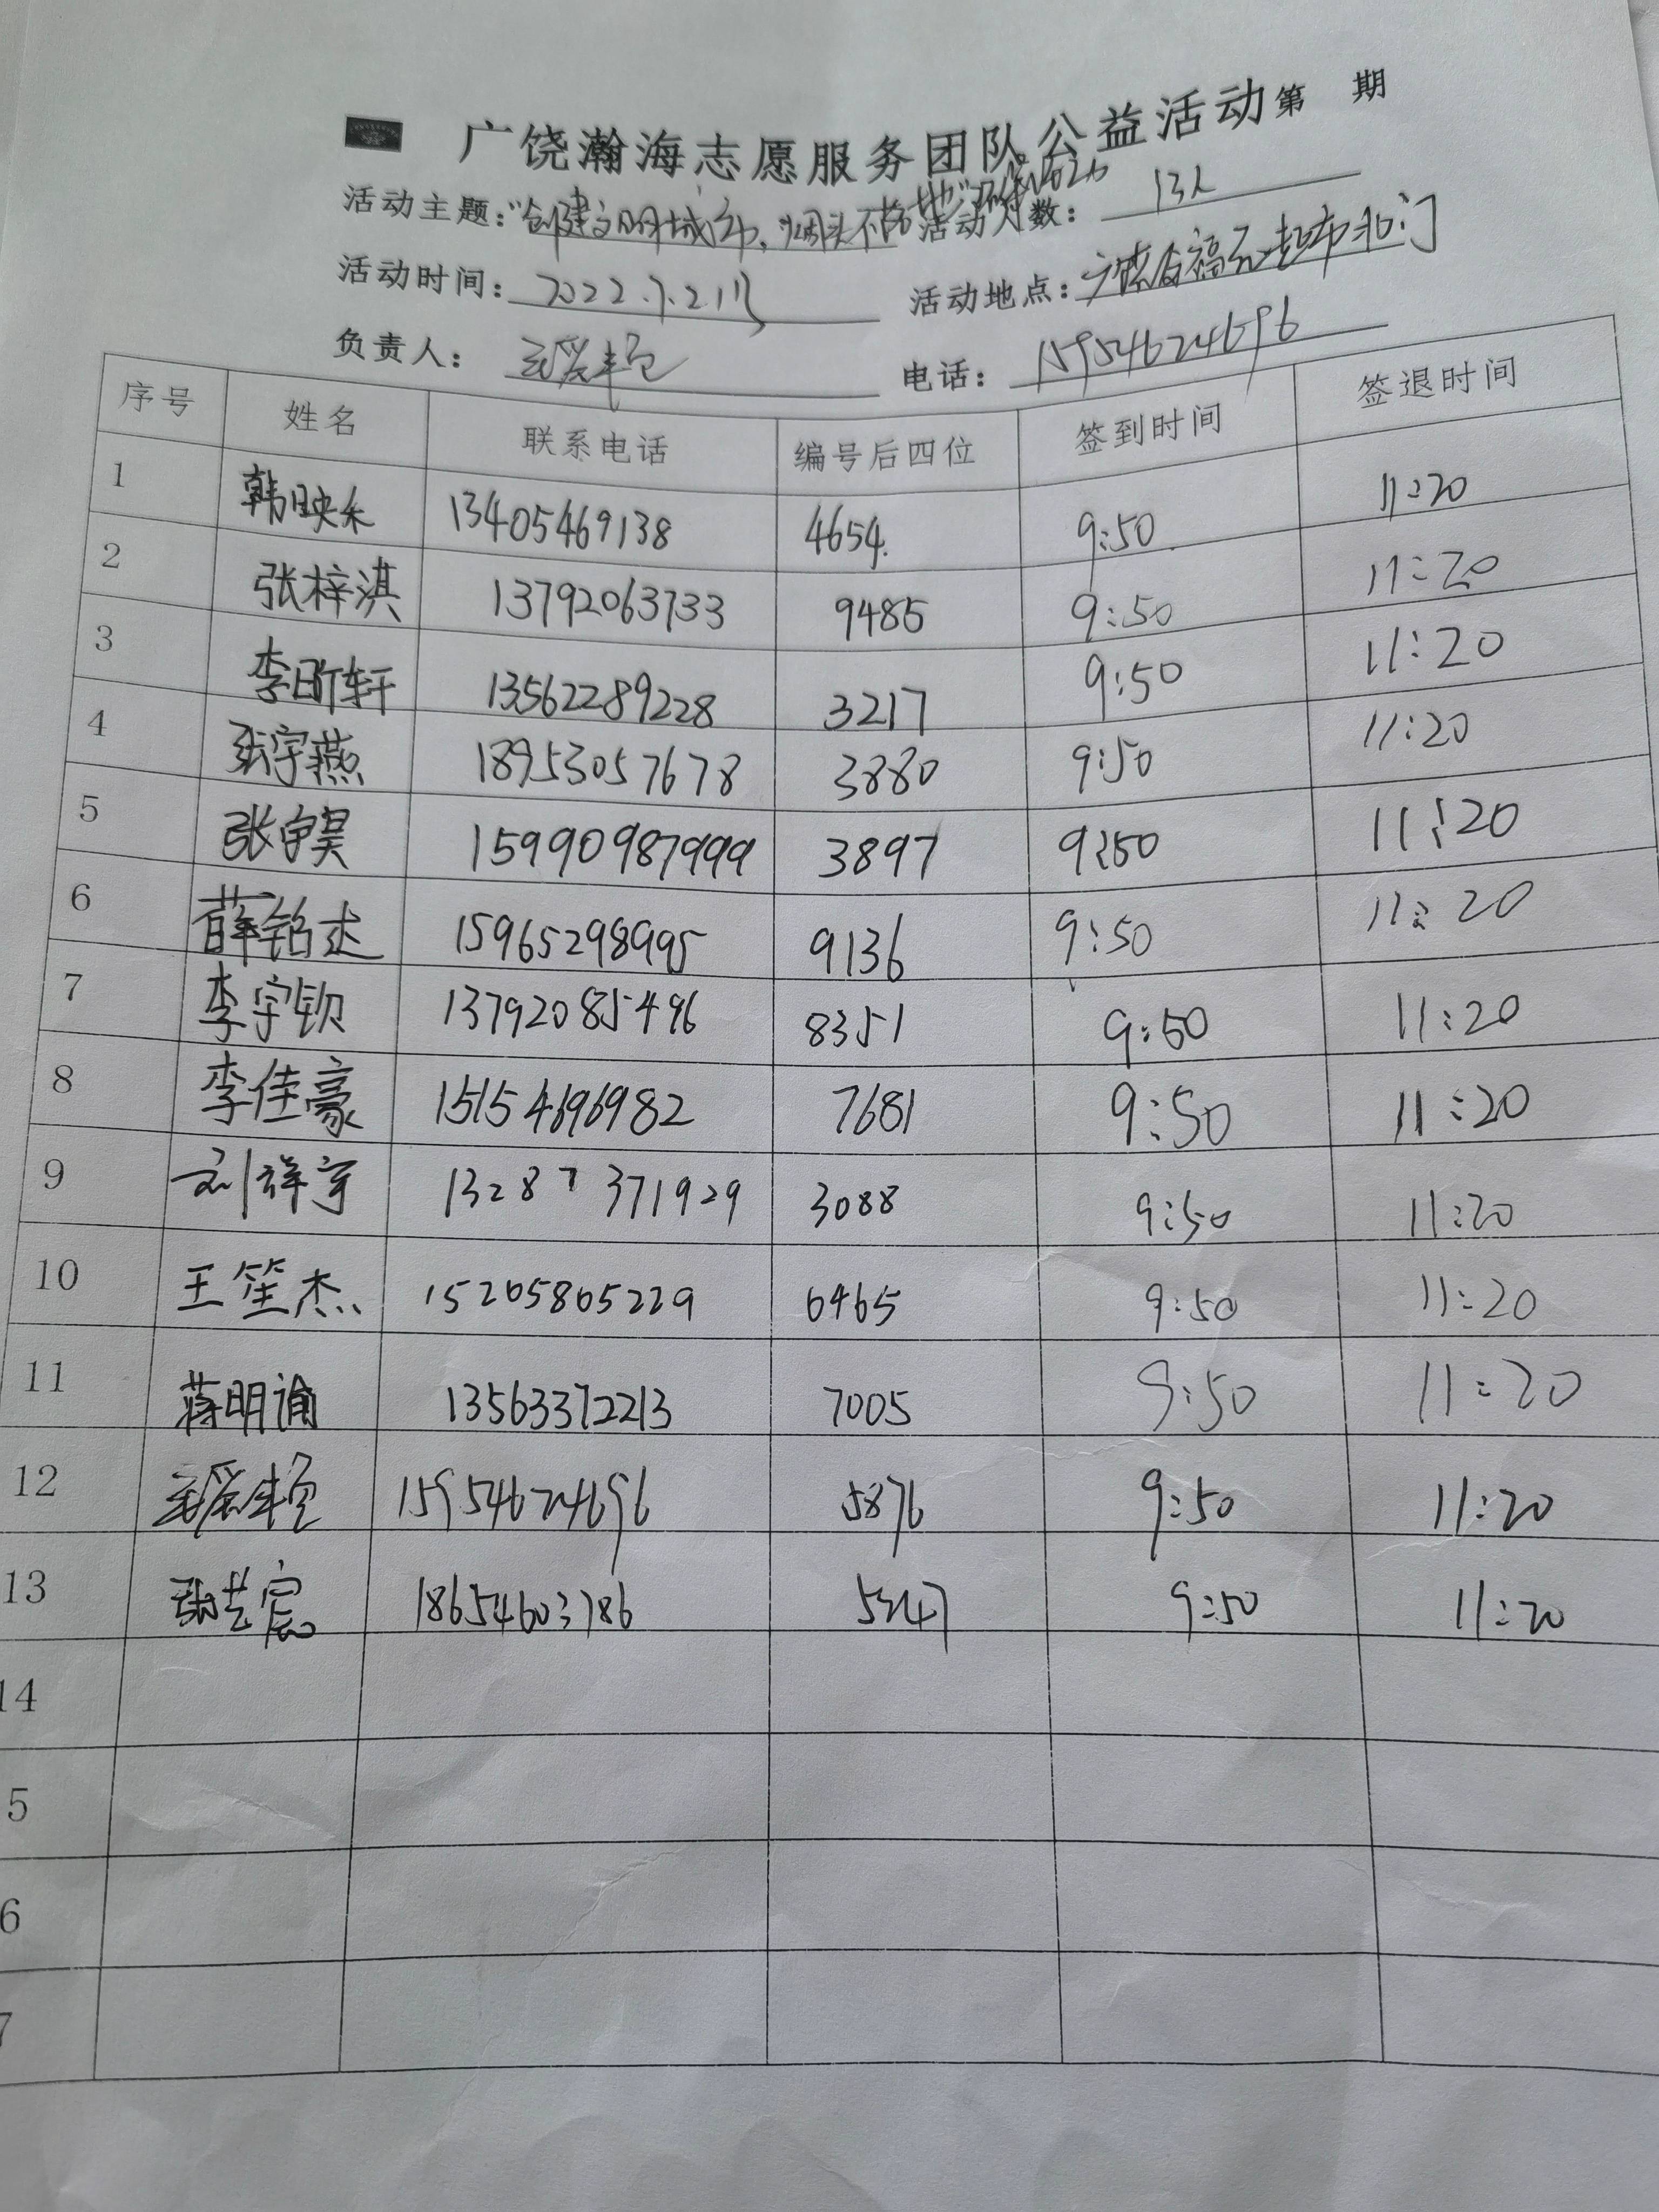 广饶瀚海志愿服务团队公益活动第 期
活动主题："创建文明城市,烟头不落地" 活动人数：13人
活动时间：2022.7.21 活动地点：广饶 超市北门
负责人： 电话：15954624696
序号 姓名 联系电话 编号后四位 签到时间 签退时间
1 韩映禾 13405469138 4654. 9:50 11:20
2 张梓淇 13792063733 9485 9:50 11:20
3 李昕轩 13562289228 3217 9:50 11:20
4 张宇燕 18953057678 3880 9:50 11:20
5 张宇昊 15990987999 3897 9:50 11:20
6 薛铭达 15965298995 9136 9:50 11:20
7 李宇钡 13792085496 8351 9:50 11:20
8 李佳豪 15154696982 7681 9:50 11:20
9 刘祥宇 13287371929 3088 9:50 11:20
10 王笙杰 15265865229 6465 9:50 11:20
11 蒋明谕 13563372213 7005 9:50 11:20
12 15954624696 5876 9:50 11:20
13 张艺宸 18654603786 5247 9:50 11:20
14
5
6
7